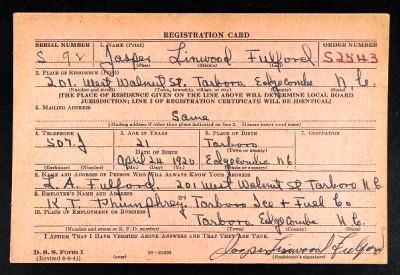 REGISTRATION CARD
SERIAL NUMBER 1. NAME (Print) ORDER NUMBER
S 92 Jasper Linwood Fulford S2543
(First) (Middle) (Last)
2. PLACE OF RESIDENCE (Print)
201 West Walnut St. Tarboro Edgecombe N.C.
(Number and street) (Town, township, village, or city) (County) (State)
[THE PLACE OF RESIDENCE GIVEN ON THE LINE ABOVE WILL DETERMINE LOCAL BOARD
JURISDICTION; LINE 2 OF REGISTRATION CERTIFICATE WILL BE IDENTICAL]
3. MAILING ADDRESS
Same
[Mailing address if other than place indicated on line 2. If same insert word same]
4. TELEPHONE 5. AGE IN YEARS 6. PLACE OF BIRTH 7. OCCUPATION
507-J 21 Tarboro
DATE OF BIRTH (Town or county)
April 24 1920 Edgecombe N.C.
(Exchange) (Number) (Mo.) (Day) (Yr.) (State or country)
8. NAME AND ADDRESS OF PERSON WHO WILL ALWAYS KNOW YOUR ADDRESS
L. A. Fulford, 201 West Walnut St Tarboro N.C.
9. EMPLOYER'S NAME AND ADDRESS
K. T. Tarboro Ice & Fuel Co
10. PLACE OF EMPLOYMENT OR BUSINESS
Tarboro Edgecombe N.C.
(Number and street or R. F. D. number) (Town) (County) (State)
I AFFIRM THAT I HAVE VERIFIED ABOVE ANSWERS AND THAT THEY ARE TRUE.
D. S. S. Form 1
(Revised 6-9-41) (over) Jasper Linwood Fulford